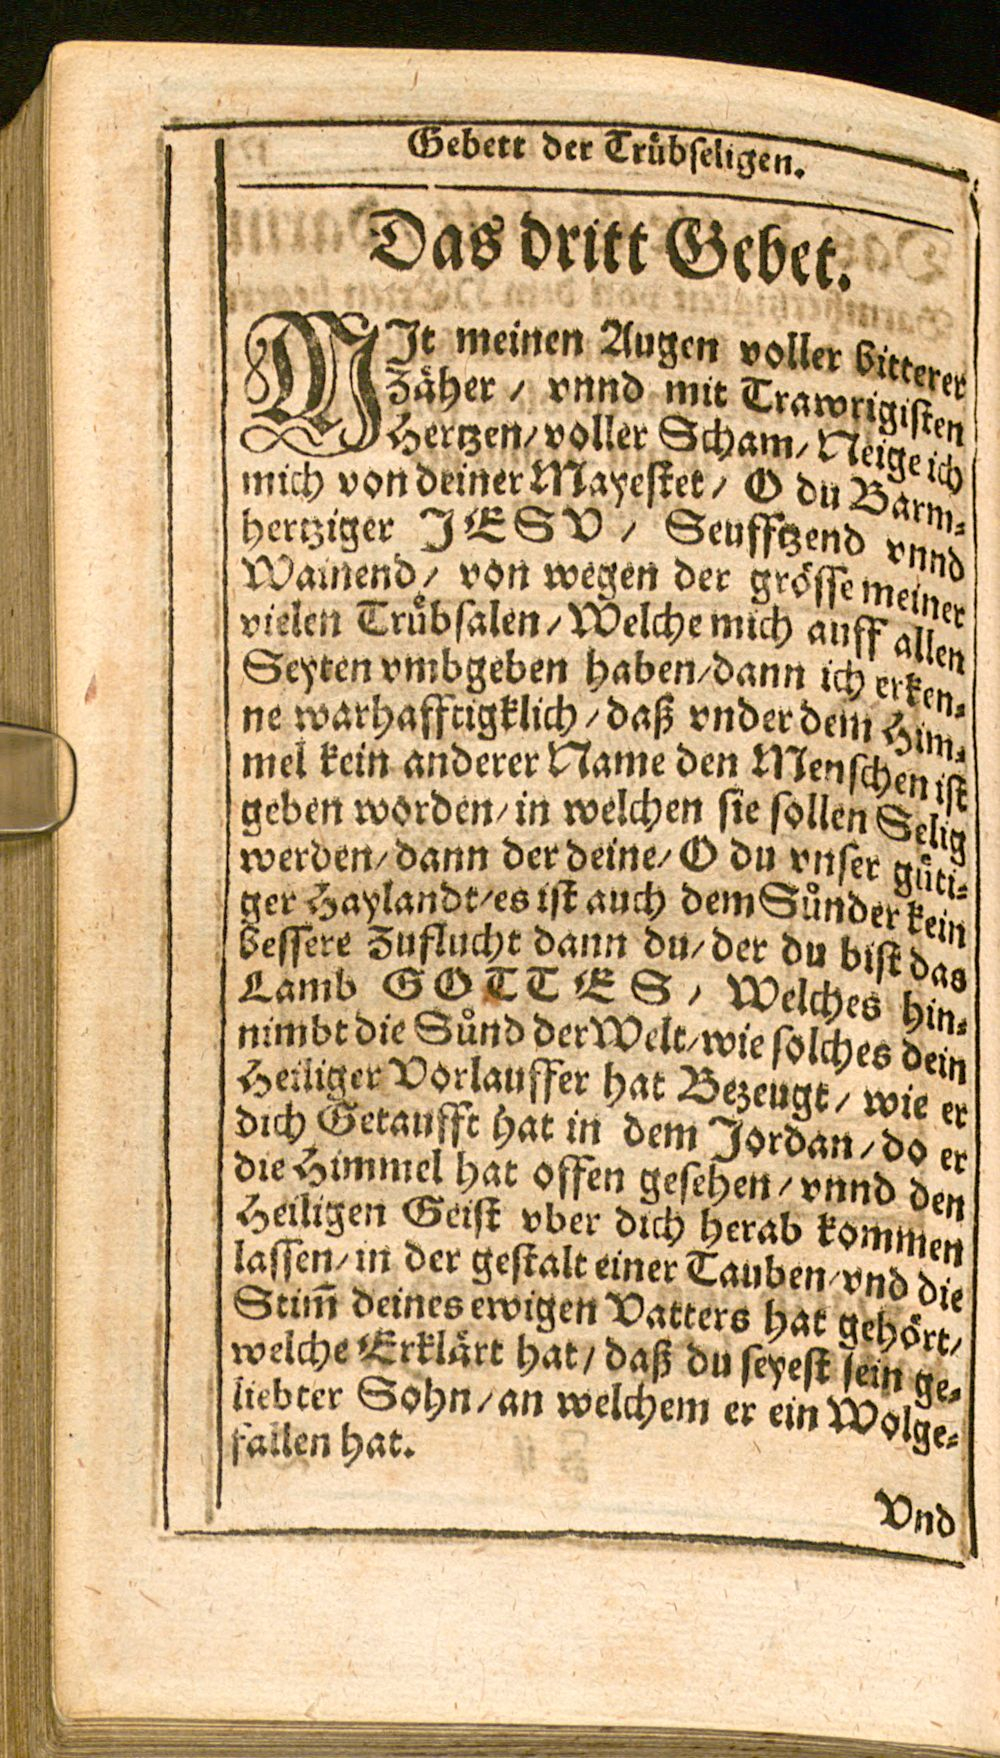 Gebett der Trůbſeligen.
Das dritt Gebet.
MIt meinen Augen voller bitterer
Zäher / vnnd mit Trawrigiſten
Hertzen / voller Scham / Neige ich
mich von deiner Mayeſtet / O du Barm⸗
hertziger JESV / Seufftzend vnnd
Wainend / von wegen der gröſſe meiner
vielen Trůbſalen / Welche mich auff allen
Seyten vmbgeben haben / dann ich erken⸗
ne warhafftigklich / daß vnder dem Him⸗
mel kein anderer Name den Menſchen iſt
geben worden / in welchen ſie ſollen Selig
werden / dann der deine / O du vnſer gůti⸗
ger Haylandt / es iſt auch dem Sůnder kein
beſſere Zuflucht dann du / der du biſt das
Lamb GOTTES / Welches hin⸗
nimbt die Sůnd der Welt / wie ſolches dein
Heiliger Vorlauffer hat Bezeugt / wie er
dich Getaufft hat in dem Jordan / do er
die Himmel hat offen geſehen / vnnd den
Heiligen Geiſt vber dich herab kommen
laſſen / in der geſtalt einer Tauben / vnd die
Stim̃ deines ewigen Vatters hat gehört /
welche Erklärt hat / daß du ſeyeſt ſein ge⸗
liebter Sohn / an welchem er ein Wolge⸗
fallen hat.
Vnd